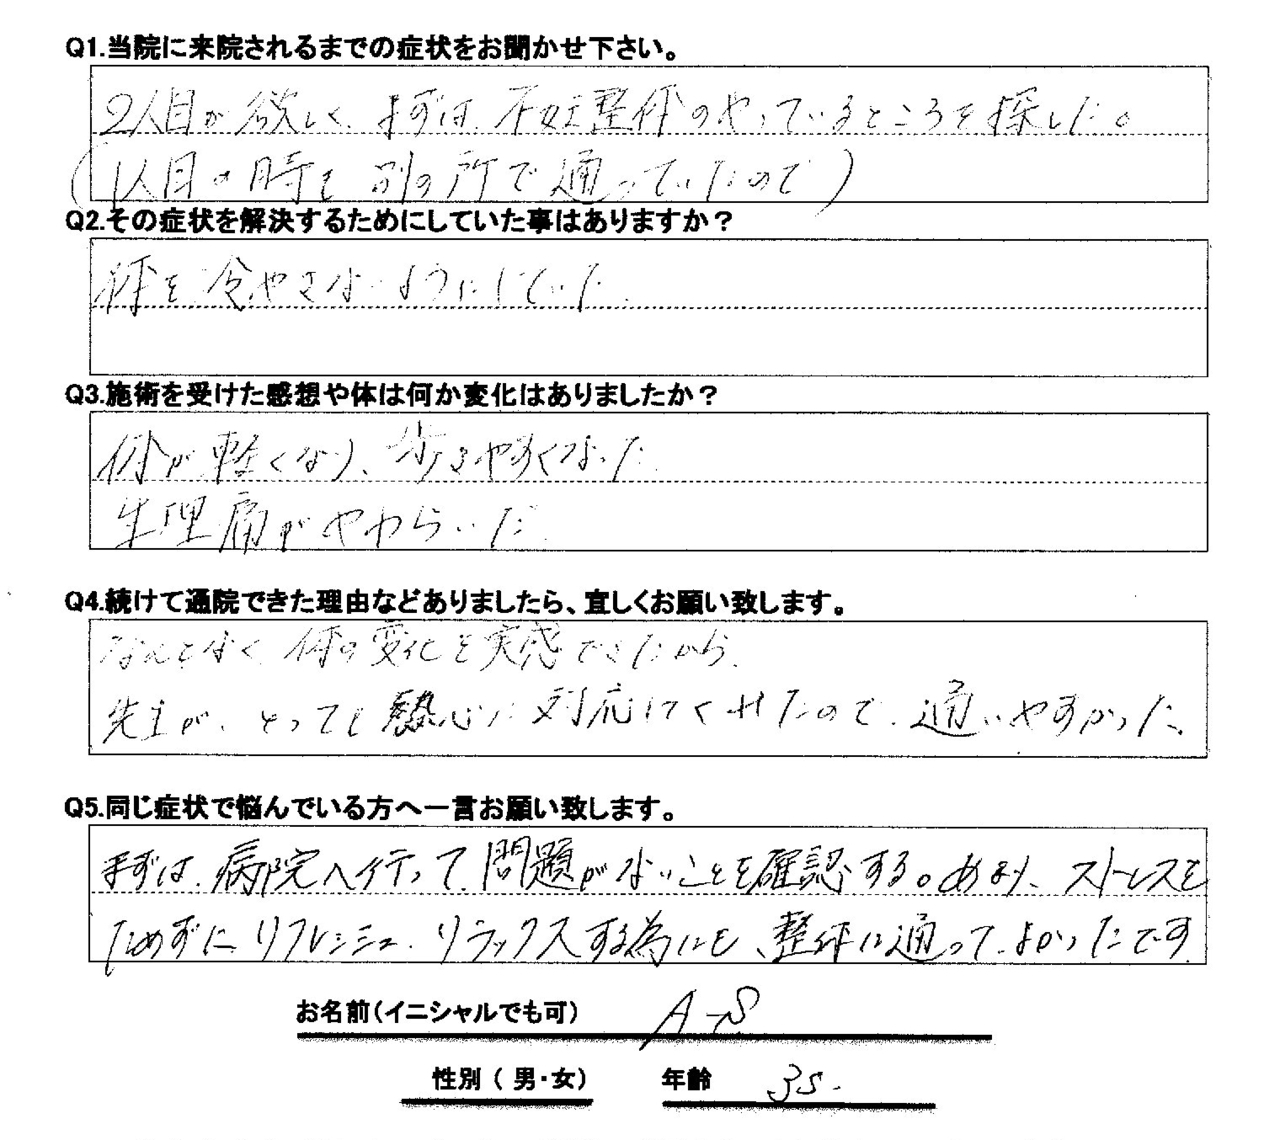 Q1.当院に来院されるまでの症状をお聞かせ下さい。
2人目が欲しく、まずは、不妊整体のやっているところを探した。
(1人目の時も別の所で通っていたので)
Q2.その症状を解決するためにしていた事はありますか？
体を冷やさないようにしていた。
Q3.施術を受けた感想や体は何か変化はありましたか？
体が軽くなり、歩きやすくなった。
生理痛がやわらいだ。
Q4.続けて通院できた理由などありましたら、宜しくお願い致します。
なんとなく、体の変化を実感できたから。
先生が、とっても熱心に対応してくれたので、通いやすかった。
Q5.同じ症状で悩んでいる方へ一言お願い致します。
まずは、病院へ行って、問題がないことを確認する。あまり、ストレスを
ためずに、リフレッシュ、リラックスする為にも、整体に通って、よかったです。
お名前(イニシャルでも可) A-S
性別 ( 男・女) 年齢 35.